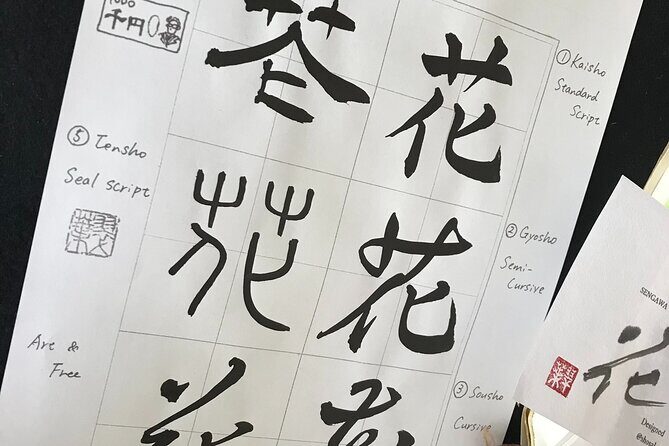 1000
千円
花
花
① Kaisho
Standard
Script
⑤ Tensho
Seal script
花
花
② Gyosho
Semi-
Cursive
Art &
Free
花
花
③ Sousho
Cursive
SENGAWA
花
Designed